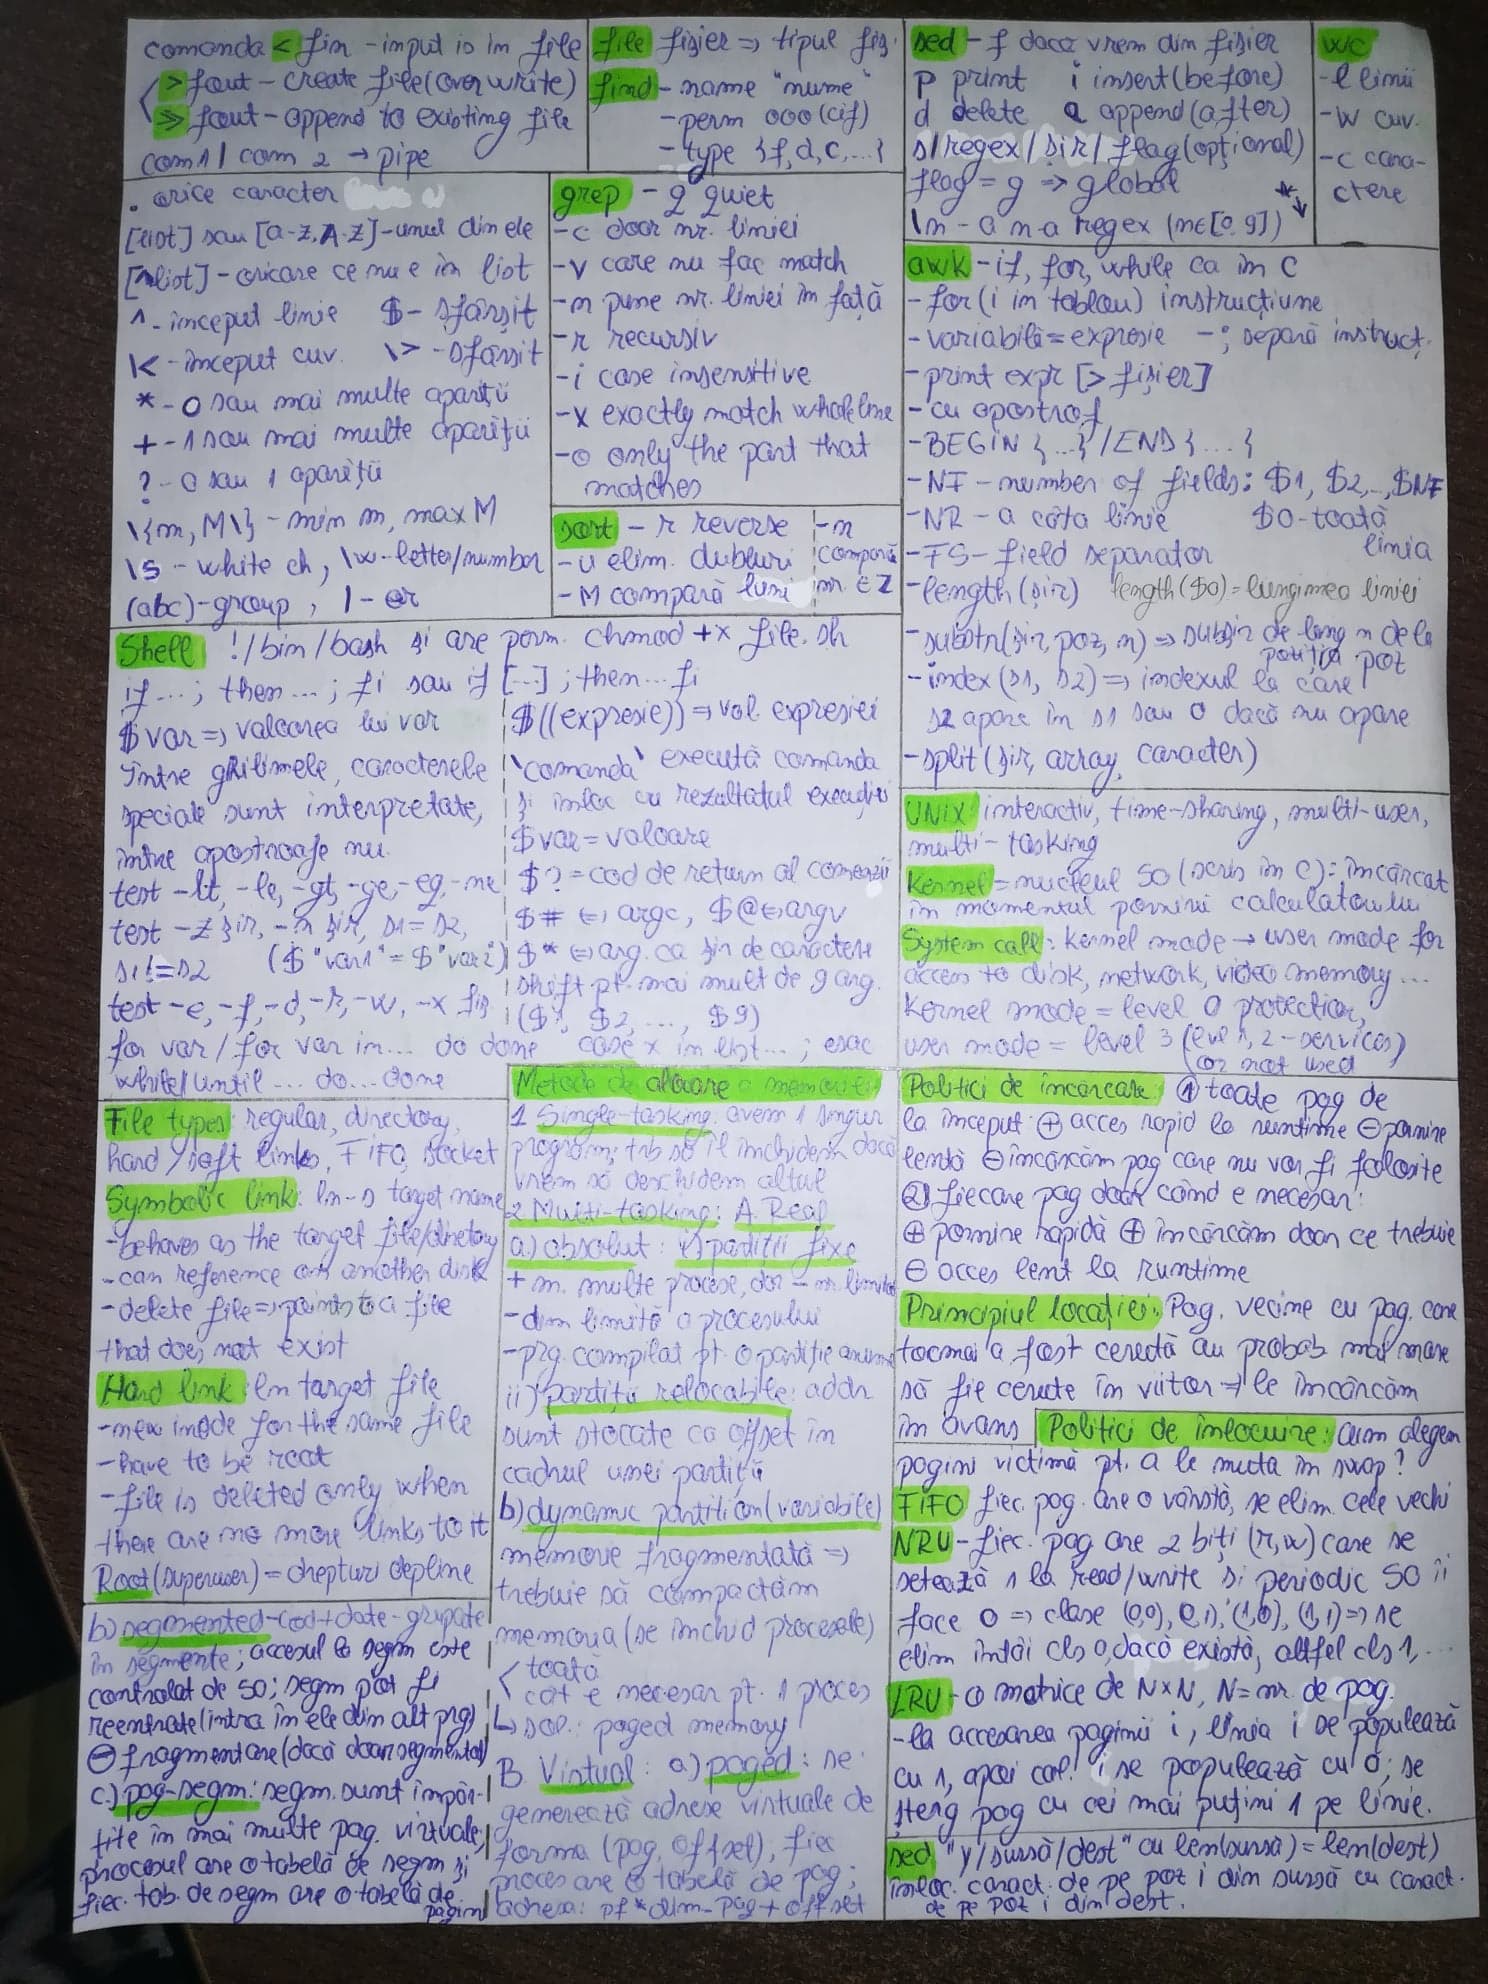 comanda < fin - input is in file
> fout - create file (overwrite)
>> fout - append to existing file
com1 | com 2 → pipe
file fișier => tipul fiș.
find - name "nume"
- perm 000 (cif)
- type {f, d, c, ...}
sed - f daca vrem din fișier
p print i insert (before)
d delete a append (after)
s/regex/șir/flag (opțional)
flag = g => global
\n - a n-a regex (n∈[0,9])
wc
-l linii
-w cuv.
-c cara-
ctere
. orice caracter
[list] sau [a-z,A-Z] - unul din ele
[^list] - oricare ce nu e în list
^ - început linie $ - sfârșit
\< - început cuv. \> - sfârșit
* - 0 sau mai multe apariții
+ - 1 sau mai multe apariții
? - 0 sau 1 apariții
\{m, M\} - min m, max M
\s - white ch, \w - letter/number
(abc) - group, | - or
grep - q quiet
-c doar nr. liniei
-v care nu fac match
-n pune nr. liniei în față
-r recursiv
-i case insensitive
-x exactly match whole line
-o only the part that
matches
sort - r reverse
-u elim. dubluri
-M compară luni
-n
compară
nr ∈ Z
awk - if, for, while ca în C
- for (i in tablou) instrucțiune
- variabilă = expresie - ; separă instrucț.
- print expr [> fișier]
- cu apostrof
- BEGIN {...} / END {...}
- NF - number of fields: $1, $2, .., $NF
- NR - a câta linie $0 - toată
linia
- FS - field separator
- length (șir) length ($0) = lungimea liniei
- substr (șir, poz, n) => subșir de lung n de la
poziția poz
- index (s1, s2) => indexul la care
s2 apare în s1 sau 0 dacă nu apare
- split (șir, array, caracter)
Shell !/bin/bash și are perm. chmod +x file.sh
if ...; then ...; fi sau if [...]; then... fi
$var => valoarea lui var
Între ghilimele, caracterele
speciale sunt interpretate,
între apostroafe nu.
test -lt, -le, -gt, -ge, -eq, -ne
test -z șir, -n șir, s1 = s2,
s1 != s2 ($"var1" = $"var2")
test -e, -f, -d, -r, -w, -x fiș.
for var / for var in... do done case x in list...; esac
while/until ... do... done
$((expresie)) => val. expresiei
`comanda` execută comanda
și înloc cu rezultatul execuției
$var = valoare
$? = cod de return al comenzii
$# <=> argc, $@ <=> argv
$* <=> arg. ca șir de caractere
shift pt. mai mult de 9 arg.
($1, $2, ..., $9)
UNIX: interactiv, time-sharing, multi-user,
multi-tasking
Kernel = nucleul SO (scris în C): încărcat
în momentul pornirii calculatorului
System call: kernel mode → user mode for
access to disk, network, video memory...
Kernel mode = level 0 protection,
user mode = level 3 (lvl 1, 2 - services)
(or not used
File types: regular, directory,
hard/soft links, FIFO, socket
Symbolic link: ln -s target name
- behaves as the target file/directory
- can reference on another disk
- delete file => points to a file
that does not exist
Hard link: ln target file
- new inode for the same file
- have to be root
- file is deleted only when
there are no more links to it
Root (superuser) = drepturi depline
b) segmented - cod + date - grupate
în segmente; accesul la segm este
controlat de SO; segm pot fi
reentrate (intra în ele din alt prg)
⊖ fragmentare (dacă doar segmentat)
c.) pag-segm: segm. sunt împăr-
țite în mai multe pag. virtuale,
procesul are o tabelă de segm și
fiec. tab. de segm are o tabelă de
pagini
Metode de alocare a memoriei
1 Single-tasking: avem 1 singur
program; trb să îl închidem dacă
vrem să deschidem altul
2 Multi-tasking: A. Real
a.) absolut: i) partiții fixe
+ m. multe procese, dar - nr. limitat
- dim limită a procesului
- prg. compilat pt. o partiție anume
ii) partiții relocabile: addr
sunt stocate ca offset în
cadrul unei partiții
b) dynamic partition (variabile)
memorie fragmentată =>
trebuie să compactăm
memoria (se închid procesele)
toată
cât e necesar pt. 1 proces
↳ sol.: paged memory
B. Virtual: a) paged: se
generează adrese virtuale de
forma (pag, offset), fiec
proces are o tabelă de pag;
adresa: pf * dim_pag + offset
Politici de încărcare: ① toate pag de
la început ⊕ acces rapid la runtime ⊖ pornire
lentă ⊖ încărcăm pag care nu vor fi folosite
② fiecare pag doar când e necesar:
⊕ pornire rapidă ⊕ încărcăm doar ce trebuie
⊖ acces lent la runtime
Principiul locației: Pag. vecine cu pag. care
tocmai a fost cerută au probab. mai mare
să fie cerute în viitor => le încărcăm
în avans
Politici de înlocuire: cum alegem
pagini victimă pt. a le muta în swap?
FIFO fiec. pag. are o vârstă, se elim. cele vechi
NRU - fiec. pag are 2 biți (r, w) care se
setează 1 la read/write și periodic SO îi
face 0 => clase (0,0), (0,1), (1,0), (1,1) => se
elim întâi cls 0, dacă există, altfel cls 1, ...
LRU - o matrice de N×N, N = nr. de pag.
- la accesarea paginii i, linia i se populează
cu 1, apoi col. i se populează cu 0; se
șterg pag cu cei mai puțini 1 pe linie.
sed "y/sursă/dest" cu len(sursă) = len(dest)
înloc. caract. de pe poz i din sursă cu caract.
de pe poz i din dest.